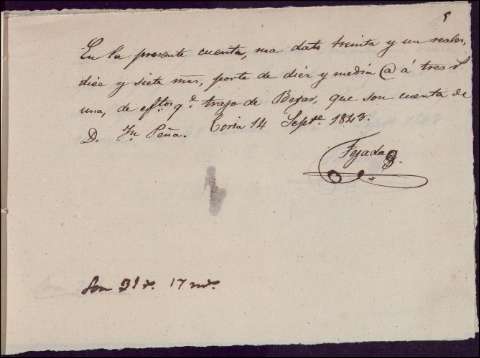 En la presente cuenta, me dato treinta y un reales,
diez y siete mrs, porte de diez y media @ á tres rs
una, de eftos qe trajo de Bejar, que son cuenta de
D. Jn Peña. Coria 14 Septre 1823.
Tejada
Son 31 rs. 17 mrs.